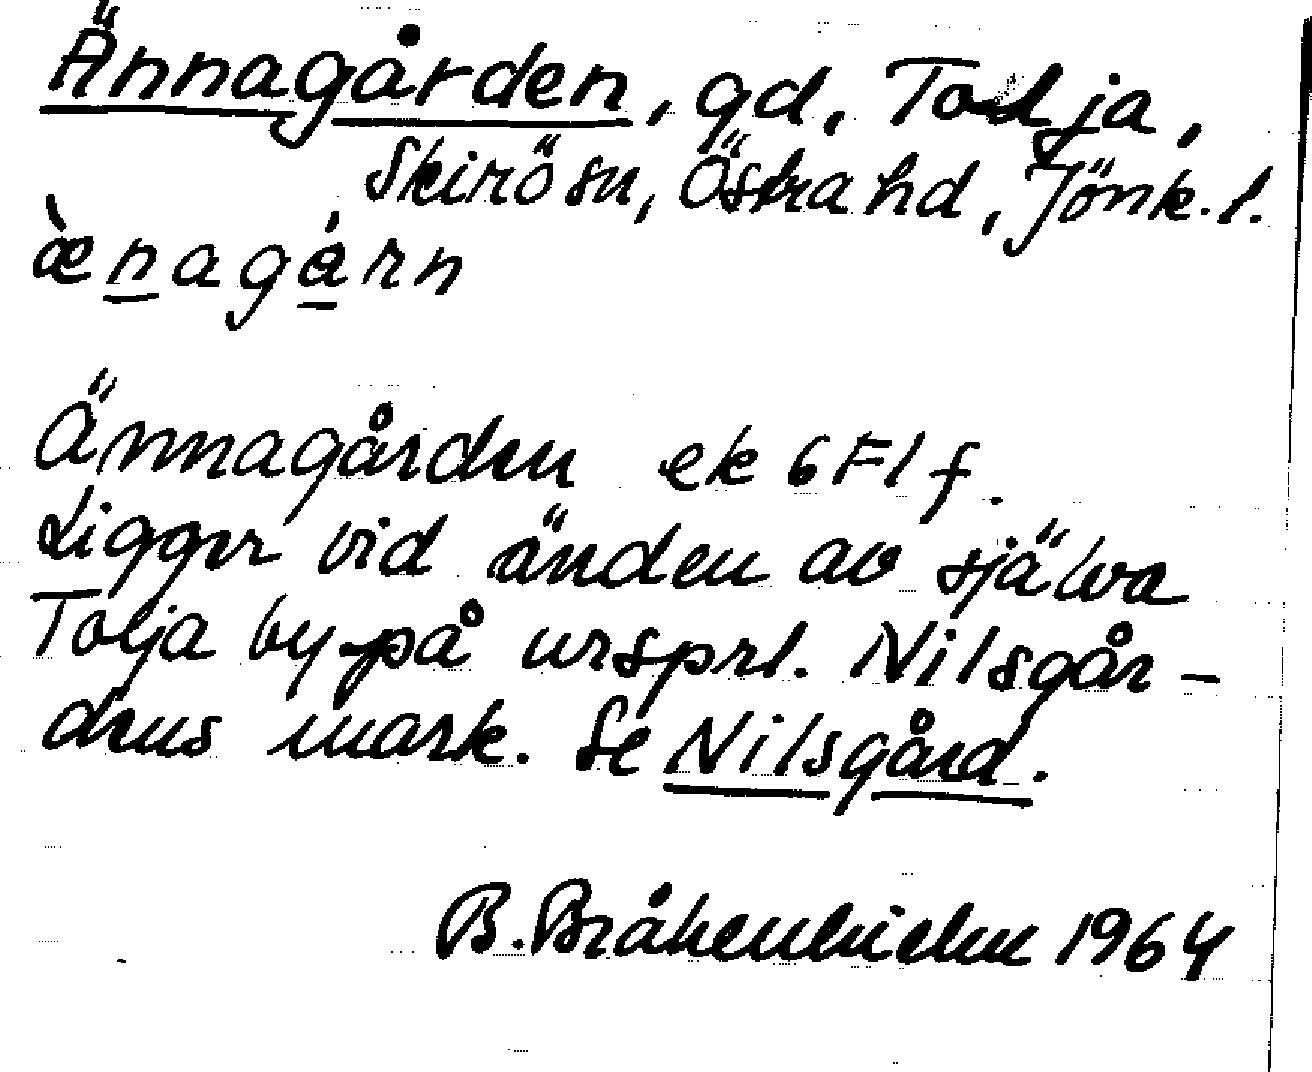 Ännagården, gd, Tolja,
Skirö sn, Östra hd, Jönk. l.
ǣ̀nagárn
Ännagården ek 6 F1 f.
Ligger vid änden av själva
Tolja by på ursprl. Nilsgår-
dens mark. Se Nilsgård.
B. Bråkenhielm 1964